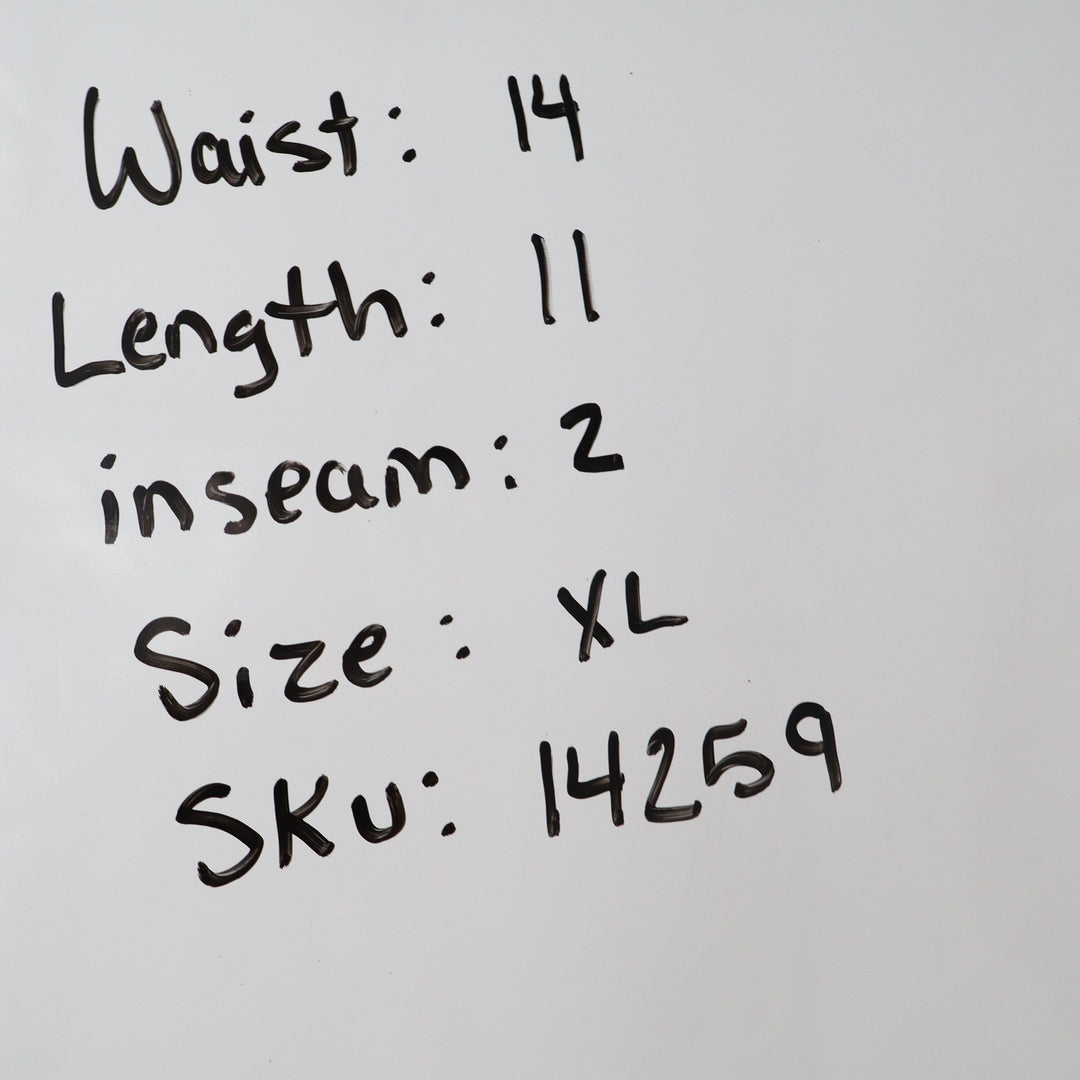 Waist: 14
Length: 11
inseam: 2
Size: XL
SKU: 14259